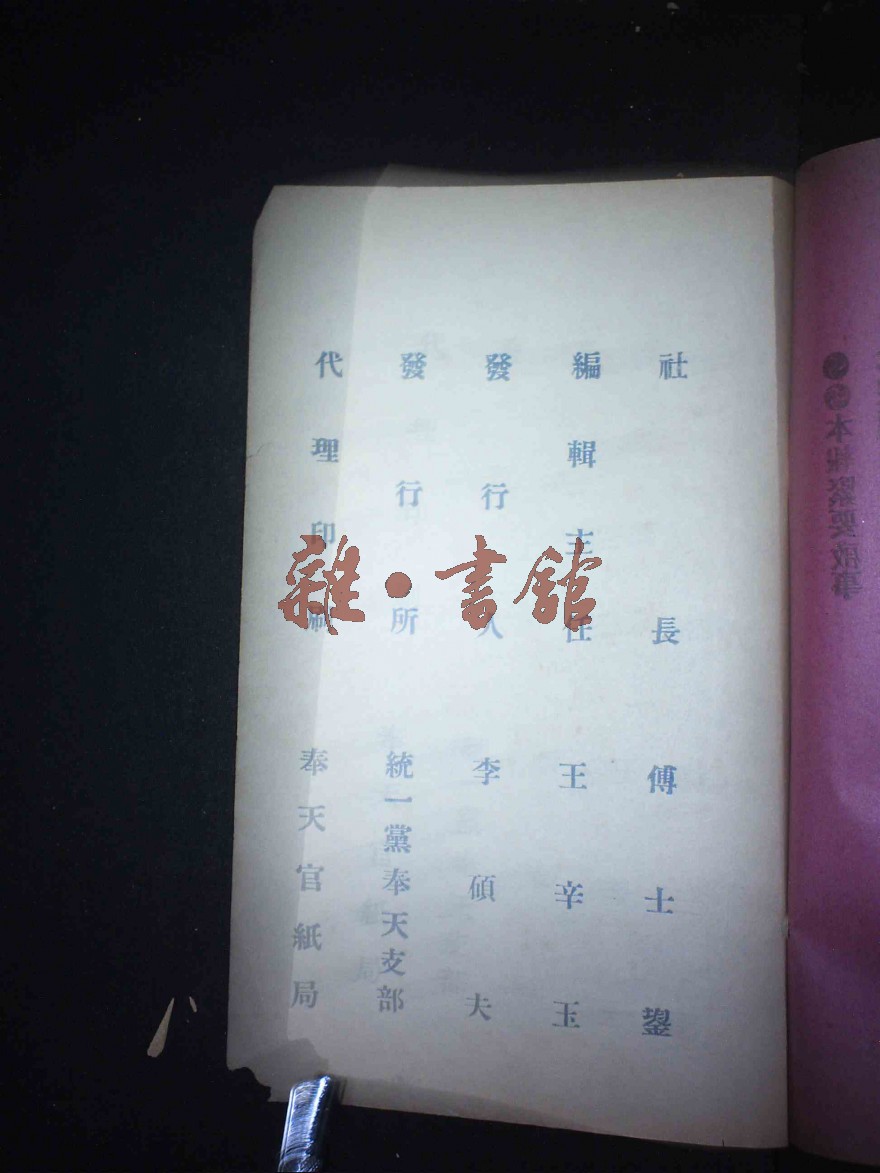 社長 傅士鋆
編輯主任 王辛玉
發行人 李碩夫
發行所 統一黨奉天支部
代理印刷 奉天官紙局
雜·書館
本報緊要啟事